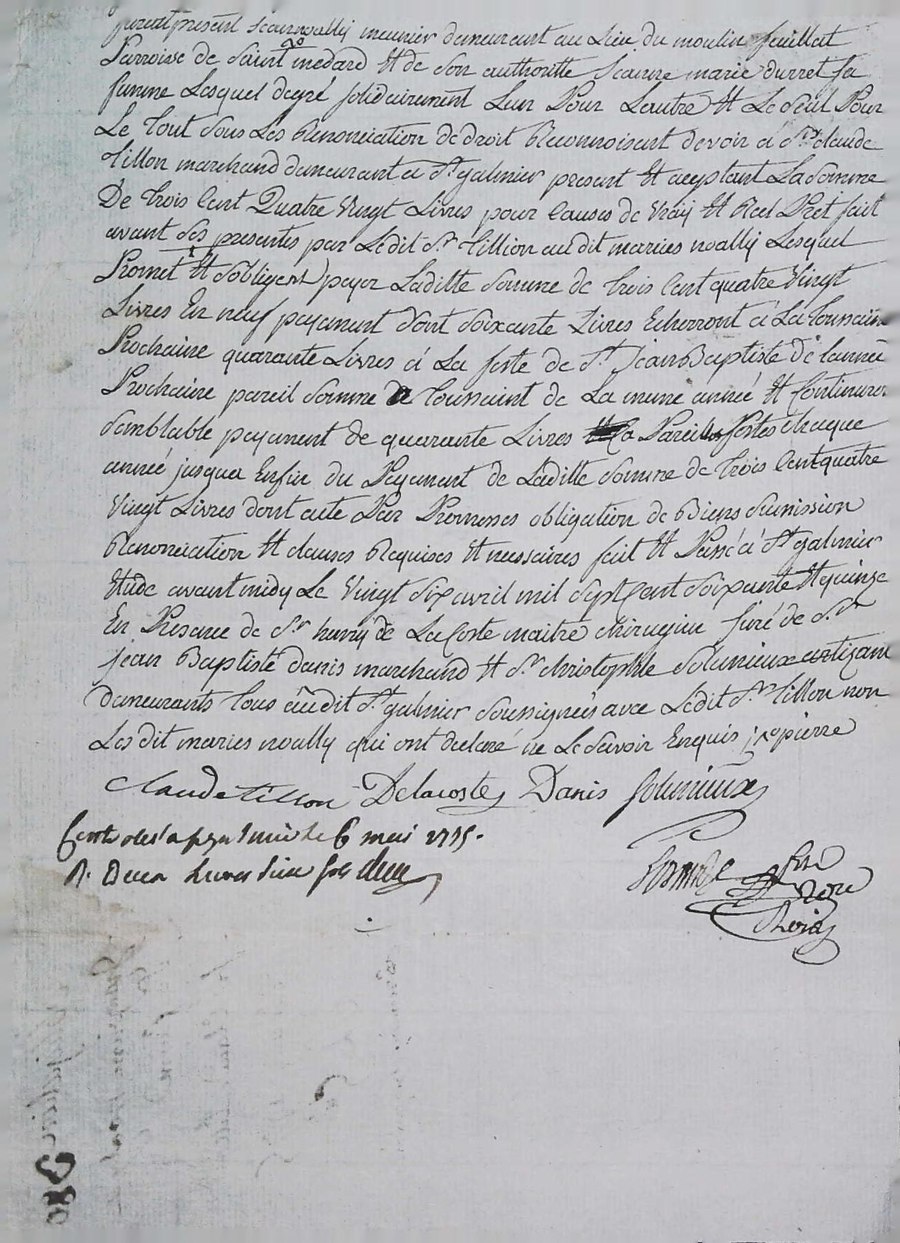 furent present Jean noally meunier demeurant au Lieu du moulin feuillat
Parroisse de Saint medard Et de son authoritté Jeanne marie durret sa
femme Lesquel degré solidairement Lun Pour Lautre Et Le seul Pour
Le tout sous Les Renonciation de droit Reconnoissent devoir à Sr. Claude
tillon marchand demeurant a St. galmier present Et acceptant La Somme
De trois Cent Quatre Vingt Livres pour Causes de Vray Et Réel Pret fait
avant Ses presentes par Ledit Sr. tillion audit mariés noally Lesquel
Promet Et Sobligent payer Laditte Somme de trois Cent quatre Vingt
Livres En neuf payement dont Soixante Livres Echerront á La toussaint
Prochaine quarante Livres á La feste de St. Jean Baptiste de lannée
Prochaine pareil Somme toussaint de La meme année Et Continueront
Semblable payement de quarante Livres a Pareilles festes chaque
année jusques Enfin du Payement de Laditte Somme de trois Cent quatre
Vingt Livres dont acte Par Promesses obligation de Biens Soumission
Renonciation Et clauses Requises Et nessaires fait Et Passé á St. galmier
Etude avant midy Le Vingt Six avril mil Sept Cent Soixante Et quinze
En Presance de Sr. henry de La Coste maitre chirugien juré de Sr.
jean Baptiste danis marchand Et Sr. christophle Solunieux artizant
demeurants tous audit St. galmier Soussignées avec Ledit Sr. tillon non
Les dit mariés noally qui ont declaré ne Le Savoir Enquis pierre
Claude tillon Delacoste Danis Solunieux
Controlé a St. galmier le 6 mai 1775.
R. Deux livres